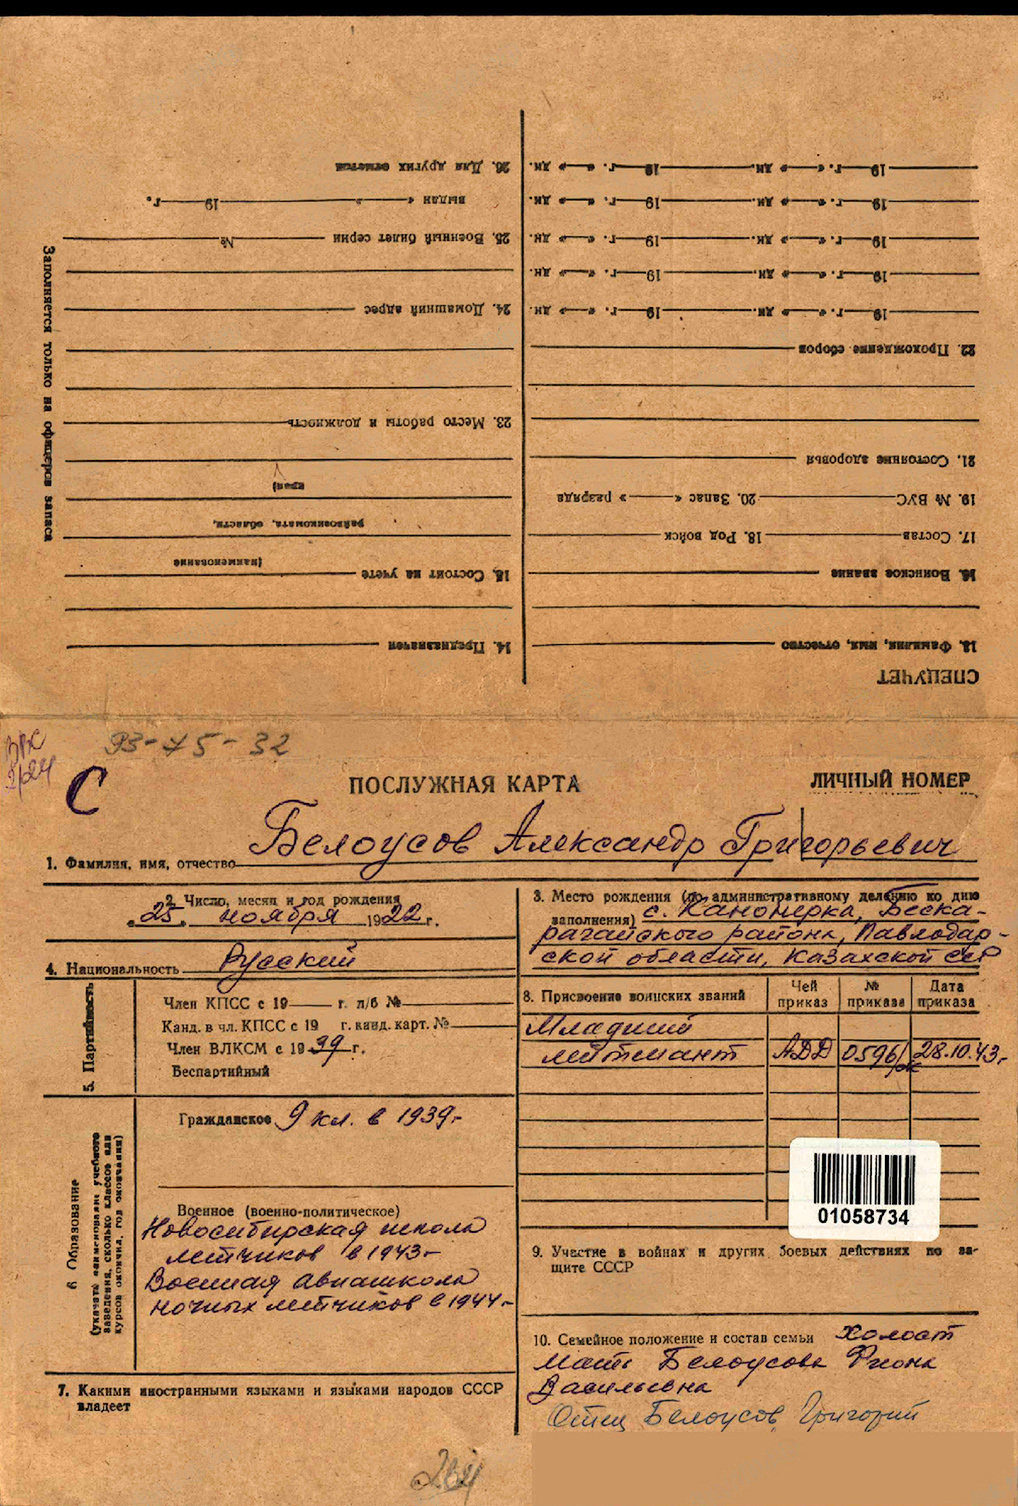 СПЕЦУЧЕТ
13. Фамилия, имя, отчество
16. Воинское звание
17. Состав 18. Род войск
19. № ВУС 20. Запас « » разряда
21. Состояние здоровья
22. Прохождение сборов
19 г. « » дн. 19 г. « » дн.
19 г. « » дн. 19 г. « » дн.
19 г. « » дн. 19 г. « » дн.
19 г. « » дн. 19 г. « » дн.
19 г. « » дн. 19 г. « » дн.
14. Предназначен
15. Состоит на учете
(наименование
райвоенкомата, области,
края)
23. Место работы и должность
24. Домашний адрес
25. Военный билет серии №
выдан « » 19 г.
26. Для других отметок
Заполняется только на офицеров запаса
93-75-32
С
ПОСЛУЖНАЯ КАРТА
ЛИЧНЫЙ НОМЕР
1. Фамилия, имя, отчество Белоусов Александр Григорьевич
2. Число, месяц и год рождения
„25„ ноября 1922 г.
3. Место рождения (по административному делению ко дню
заполнения) с. Канонерка, Беска-
рагайского района, Павлодар-
ской области, Казахской ССР
4. Национальность Русский
5. Партийность
Член КПСС с 19 г. п/б №
Канд. в чл. КПСС с 19 г. канд. карт. №
Член ВЛКСМ с 1939 г.
Беспартийный
8. Присвоение воинских званий
Чей приказ
№ приказа
Дата приказа
Младший
лейтенант АДД 0596/лк 28.10.43г.
6 Образование
(указать наименование учебного
заведения, сколько классов или
курсов окончил, год окончания)
Гражданское 9 кл. в 1939г.
Военное (военно-политическое)
Новосибирская школа
летчиков в 1943г.
Военная авиашкола
ночных летчиков в 1944г.
7. Какими иностранными языками и языками народов СССР
владеет
01058734
9. Участие в войнах и других боевых действиях по за-
щите СССР
10. Семейное положение и состав семьи Холост
Мать Белоусова
Васильевна
Отец Белоусов Григорий